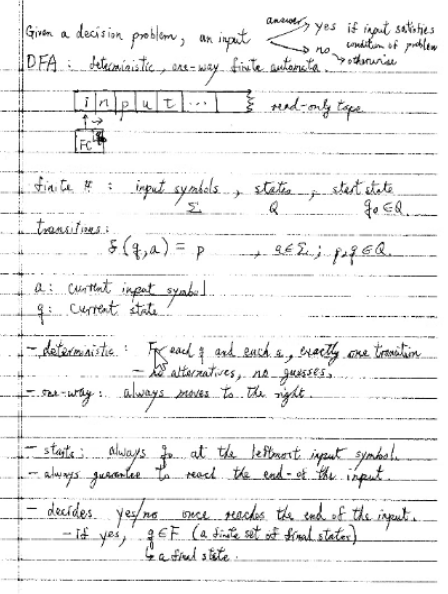 Given a decision problem, an input answer yes if input satisfies condition of problem
no otherwise
DFA : deterministic, one-way finite automata.
i n p u t ... read-only tape
FC
finite # : input symbols, states, start state
Σ Q q₀ ∈ Q
transitions:
δ(q,a) = p , a ∈ Σ ; p,q ∈ Q
a : current input symbol
q : current state
- deterministic : For each q and each a, exactly one transition
- no alternatives, no guesses.
- one-way : always moves to the right.
- starts : always q₀ at the leftmost input symbol.
- always guarantee to reach the end-of the input.
- decides yes/no once reaches the end of the input.
- if yes, q ∈ F (a finite set of final states)
a final state